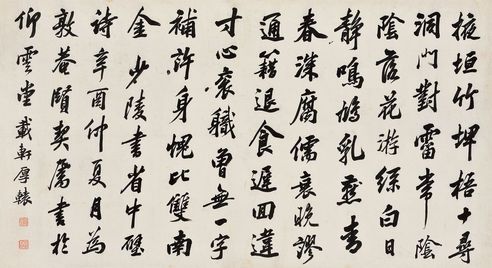 掖垣竹埤梧十尋
洞門對霤常陰
陰落花游絲白日
靜鳴鳩乳燕青
春深腐儒衰晚謬
通籍退食遲回違
寸心袞職曾無一字
補許身愧比雙南
金 少陵書省中壁
詩辛酉仲夏月為
敦菴賢契屬書於
仰雲堂 載軒厚轅